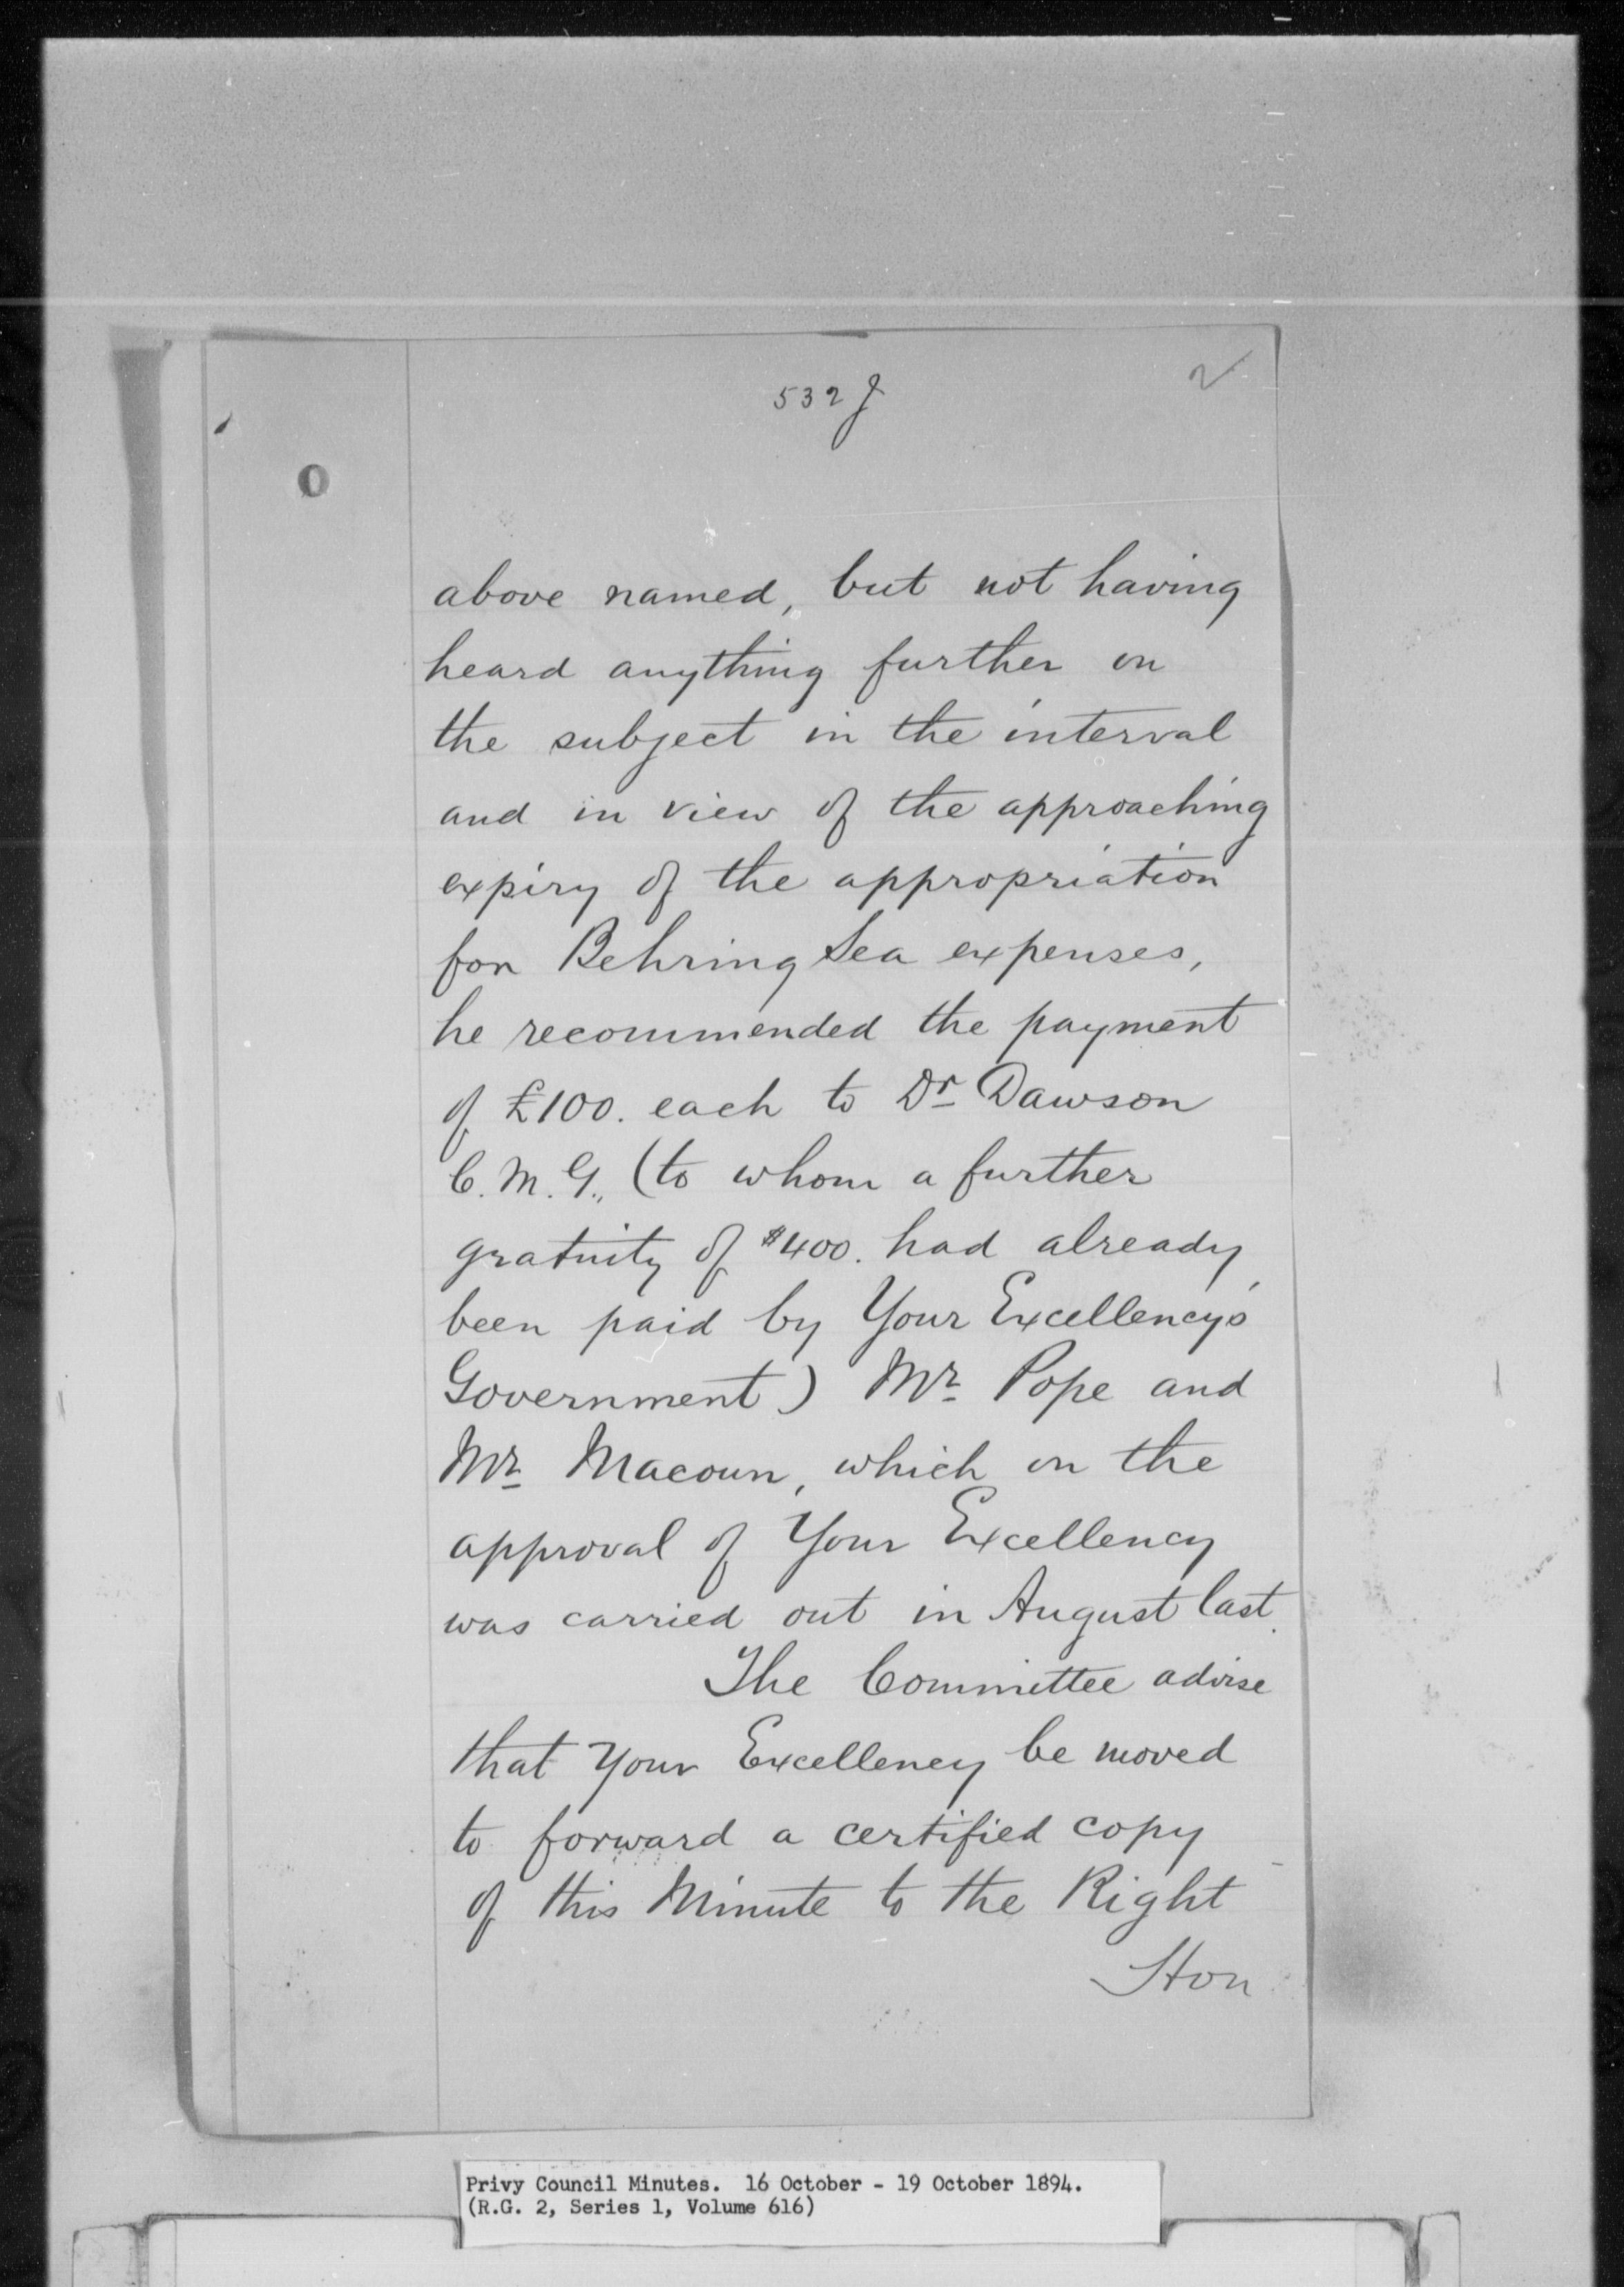 532 J
2
above named, but not having
heard anything further on
the subject in the interval
and in view of the approaching
expiry of the appropriation
for Behring Sea expenses,
he recommended the payment
of £100. each to Dr Dawson
C. M. G., (to whom a further
gratuity of $400. had already
been paid by Your Excellency's
Government) Mr Pope and
Mr Macoun, which on the
approval of Your Excellency
was carried out in August last.
The Committee advise
that Your Excellency be moved
to forward a certified copy
of this Minute to the Right
Hon
Privy Council Minutes. 16 October - 19 October 1894.
(R.G. 2, Series 1, Volume 616)